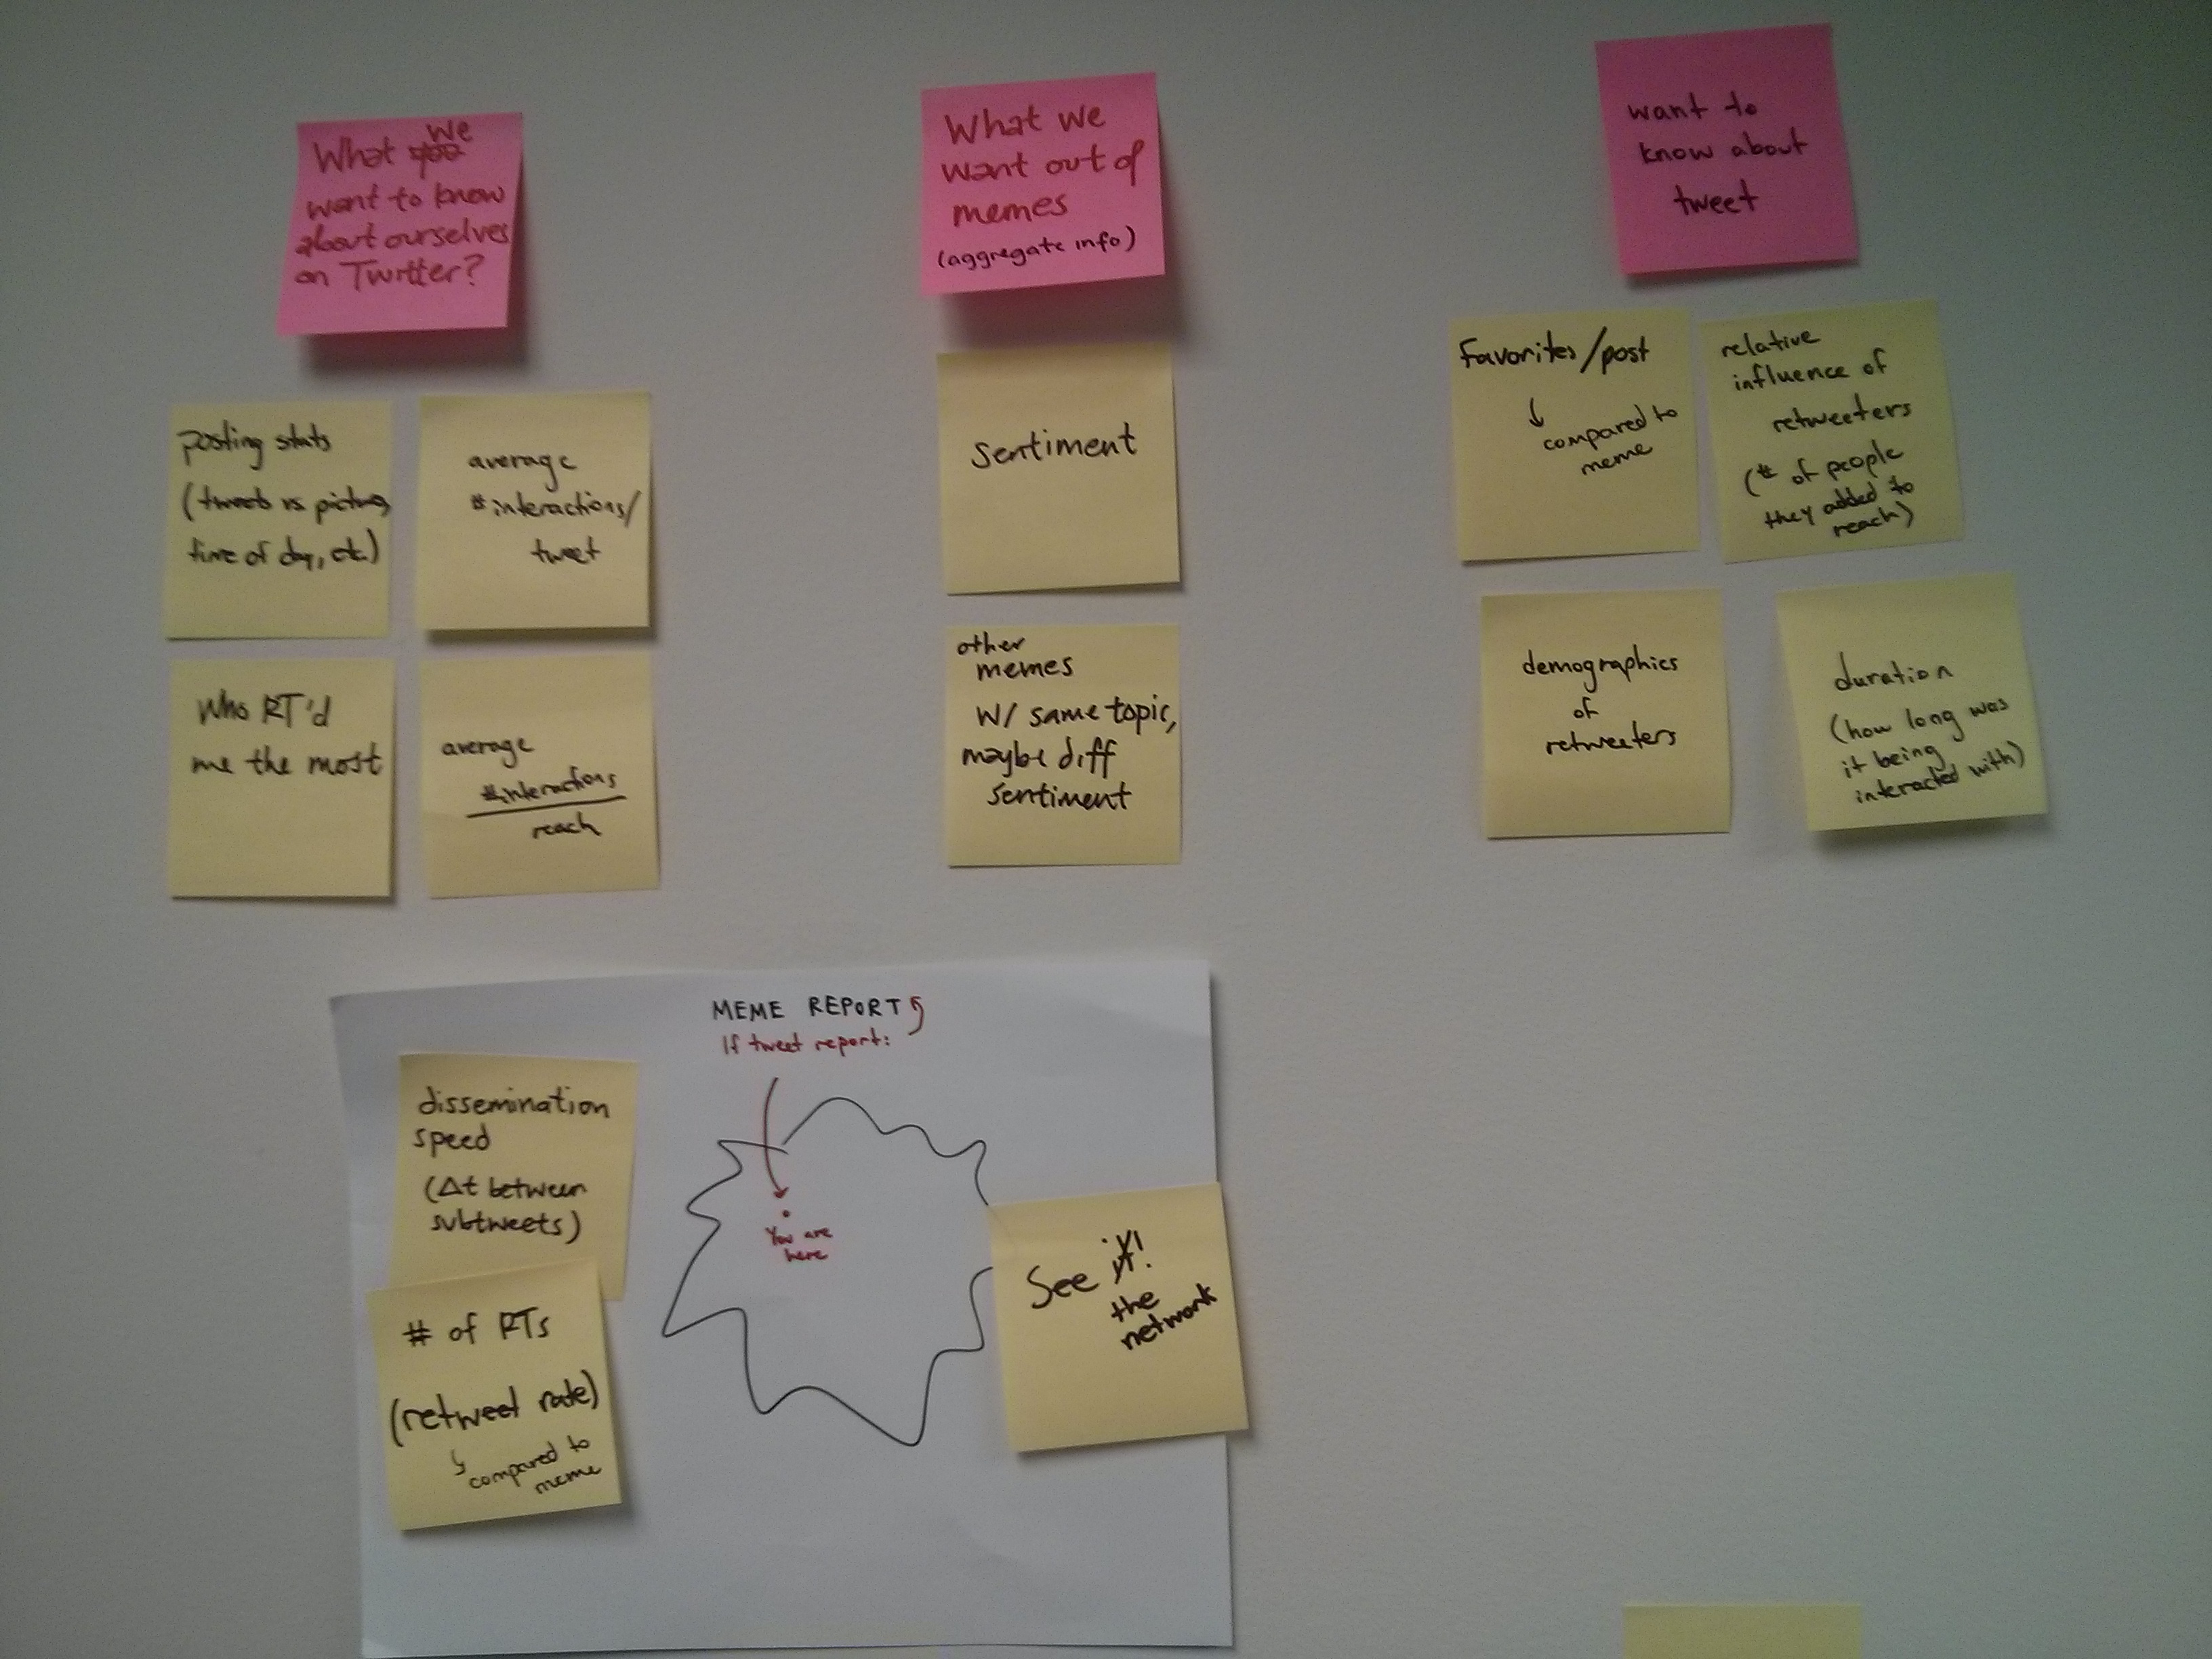 What we
want to know
about ourselves
on Twitter?
posting stats
(tweets vs pictures,
time of day, etc.)
average
#interactions/
tweet
Who RT'd
me the most
average
#interactions
reach
What we
want out of
memes
(aggregate info)
Sentiment
other
memes
W/ same topic,
maybe diff
sentiment
want to
know about
tweet
Favorites/post
↓
compared to
meme
relative
influence of
retweeters
(# of people
they added to
reach)
demographics
of
retweeters
duration
(how long was
it being
interacted with)
MEME REPORT
If tweet report:
You are
here
dissemination
speed
(Δt between
subtweets)
# of RTs
(retweet rate)
↳ compared to
meme
See it!
the
network